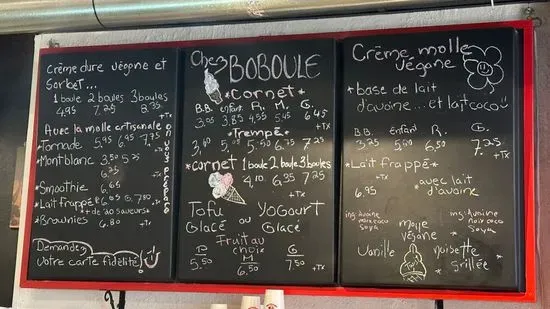 Crème dure végane et
Sorbet...
1 boule 2 boules 3 boules
4,95 7,25 8,35
+Tx
Avec la molle artisanale
*Tornade 5,95 6,95 7,75
*Montblanc 3,50 5,25
6,25
*Smoothie 6,65
*Lait frappé 6,65
+ de 20 saveurs*
*Brownies 6,80 +Tx
Demandez
votre carte fidélité!
Chez
BOBOULE
*Cornet*
B.B. enfant R. M. G.
3,05 3,85 4,55 5,45 6,45
+Tx
*Trempé*
*cornet 1 boule 2 boule 3 boules
4,10 6,35 7,25
+Tx
Tofu Yogourt
Glacé ou Glacé
Fruit au
choix
P M G
5,50 6,50 7,50
+Tx
Crème molle
végane
*base de lait
d'avoine... et lait coco
B.B. Enfant R. G.
6,50 7,25
+Tx
*Lait frappé*
+Tx
6,95
*avec lait
d'avoine
ing: Avoine
noix coco
Soya
molle
végane
ing: Avoine
noix coco
Soya
Vanille
noisette
grillée